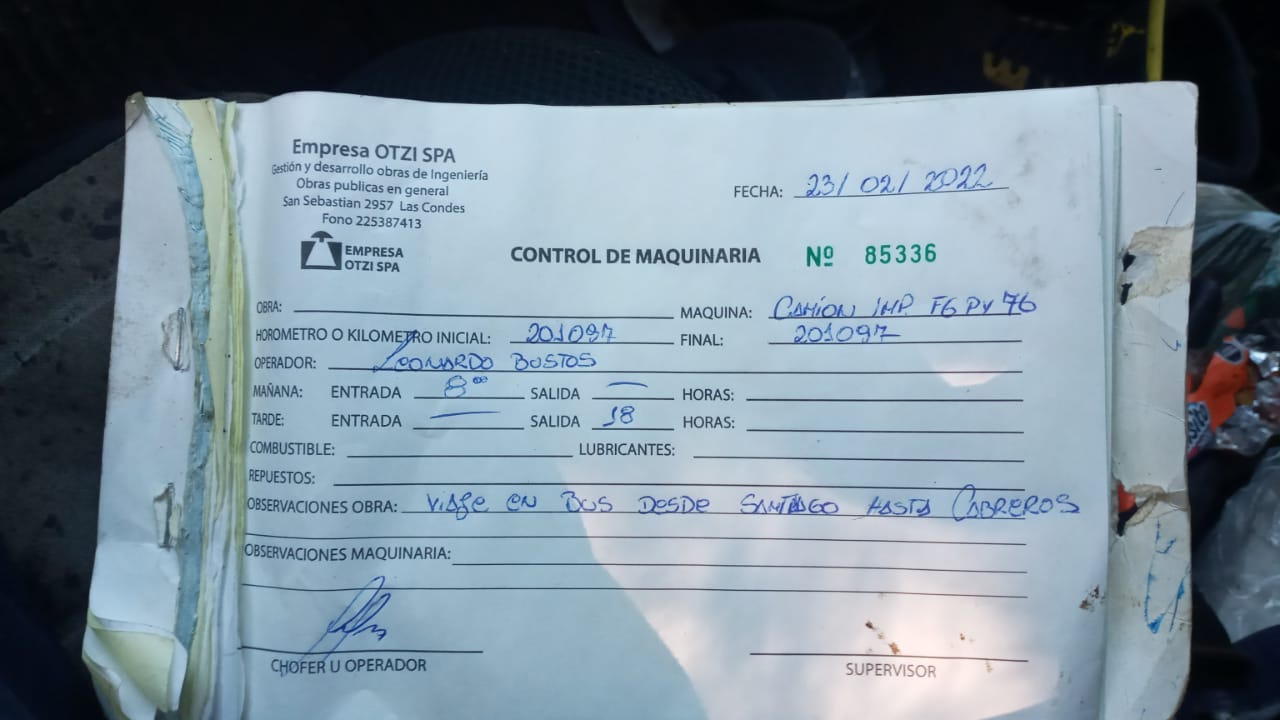 Empresa OTZI SPA
Gestión y desarrollo obras de Ingeniería
Obras publicas en general
San Sebastian 2957 Las Condes
Fono 225387413
EMPRESA
OTZI SPA
FECHA: 23/02/2022
CONTROL DE MAQUINARIA Nº 85336
OBRA: MAQUINA: CAMION IMP. FGPY 76
HOROMETRO O KILOMETRO INICIAL: 201097 FINAL: 201097
OPERADOR: LEONARDO BUSTOS
MAÑANA: ENTRADA 8⁰⁰ SALIDA — HORAS:
TARDE: ENTRADA — SALIDA 18 HORAS:
COMBUSTIBLE: LUBRICANTES:
REPUESTOS:
OBSERVACIONES OBRA: VIAJE EN BUS DESDE SANTIAGO HASTA CABREROS
OBSERVACIONES MAQUINARIA:
CHOFER U OPERADOR SUPERVISOR